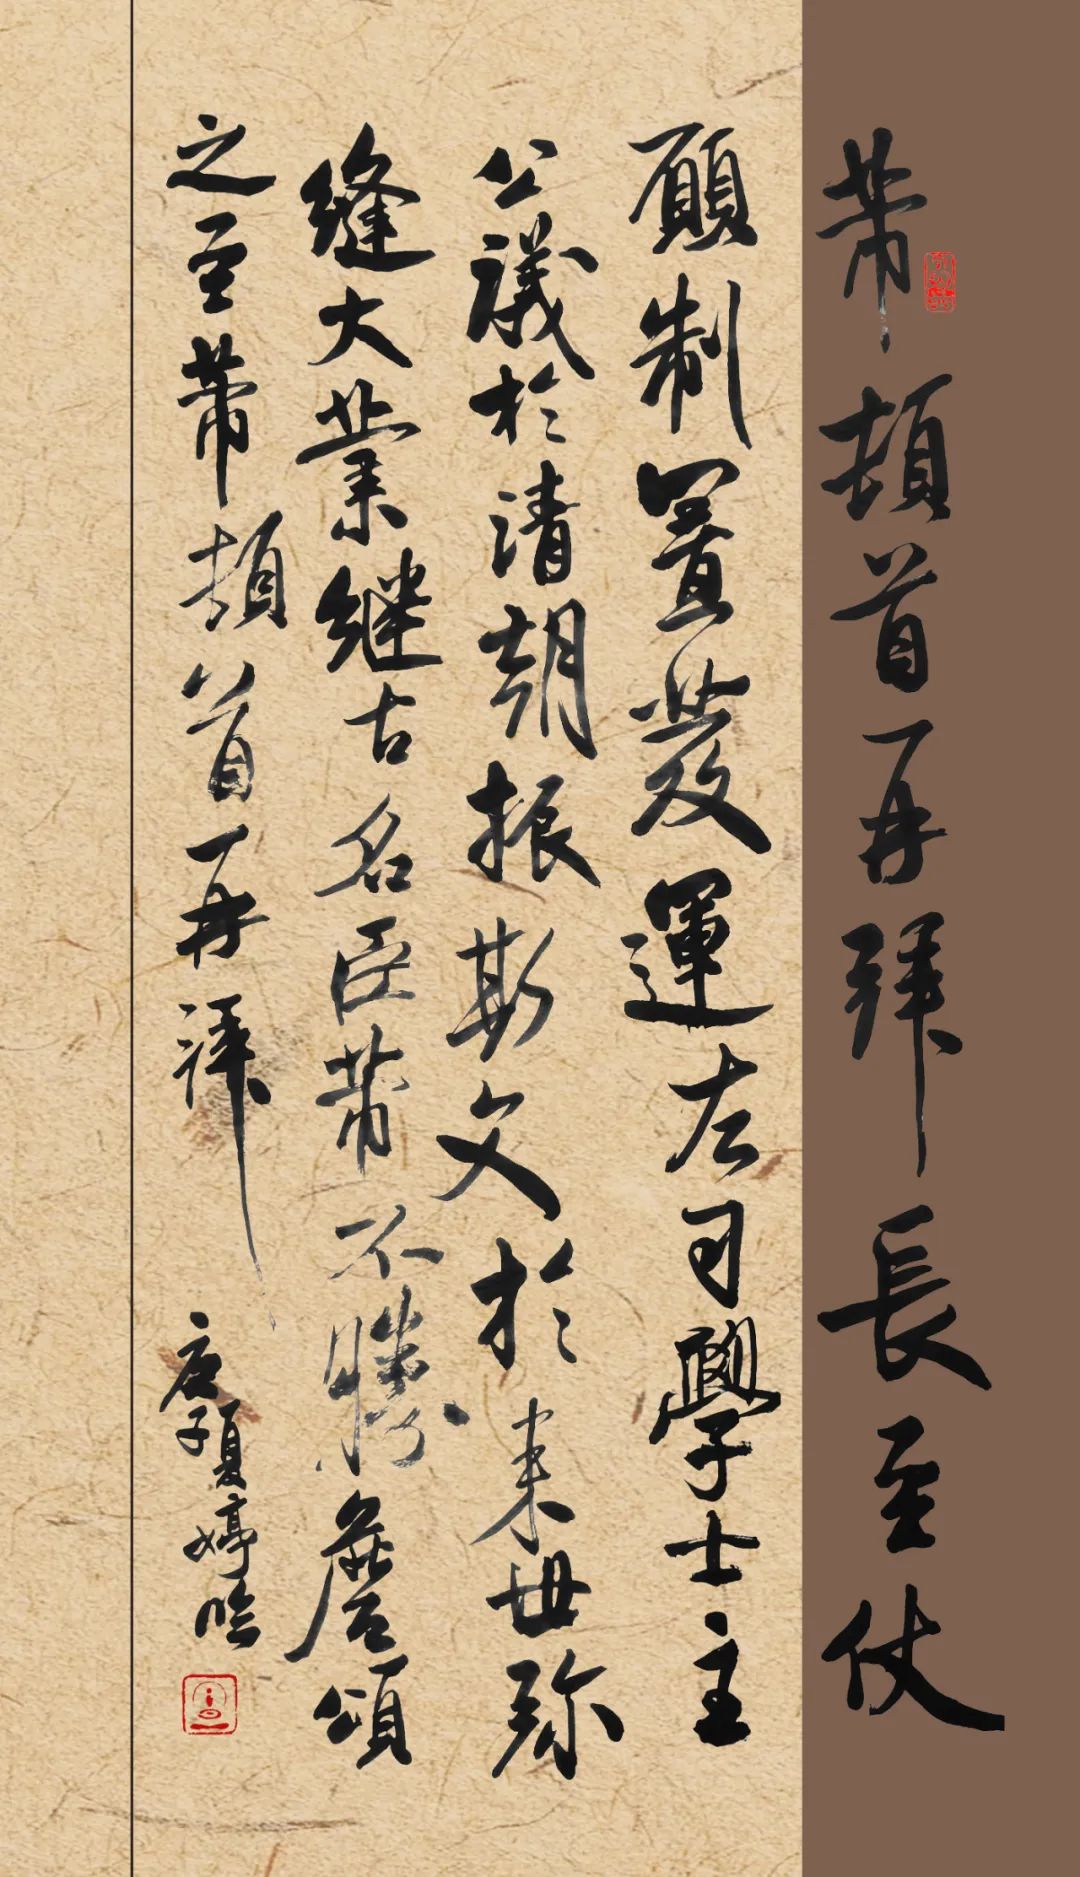 芾頓首再拜長至伏
願制置發運左司學士主
公議於清朝振斯文於來世弥
縫大業継古名臣芾不勝詹頌
之至芾頓首再拜
庚子夏婷